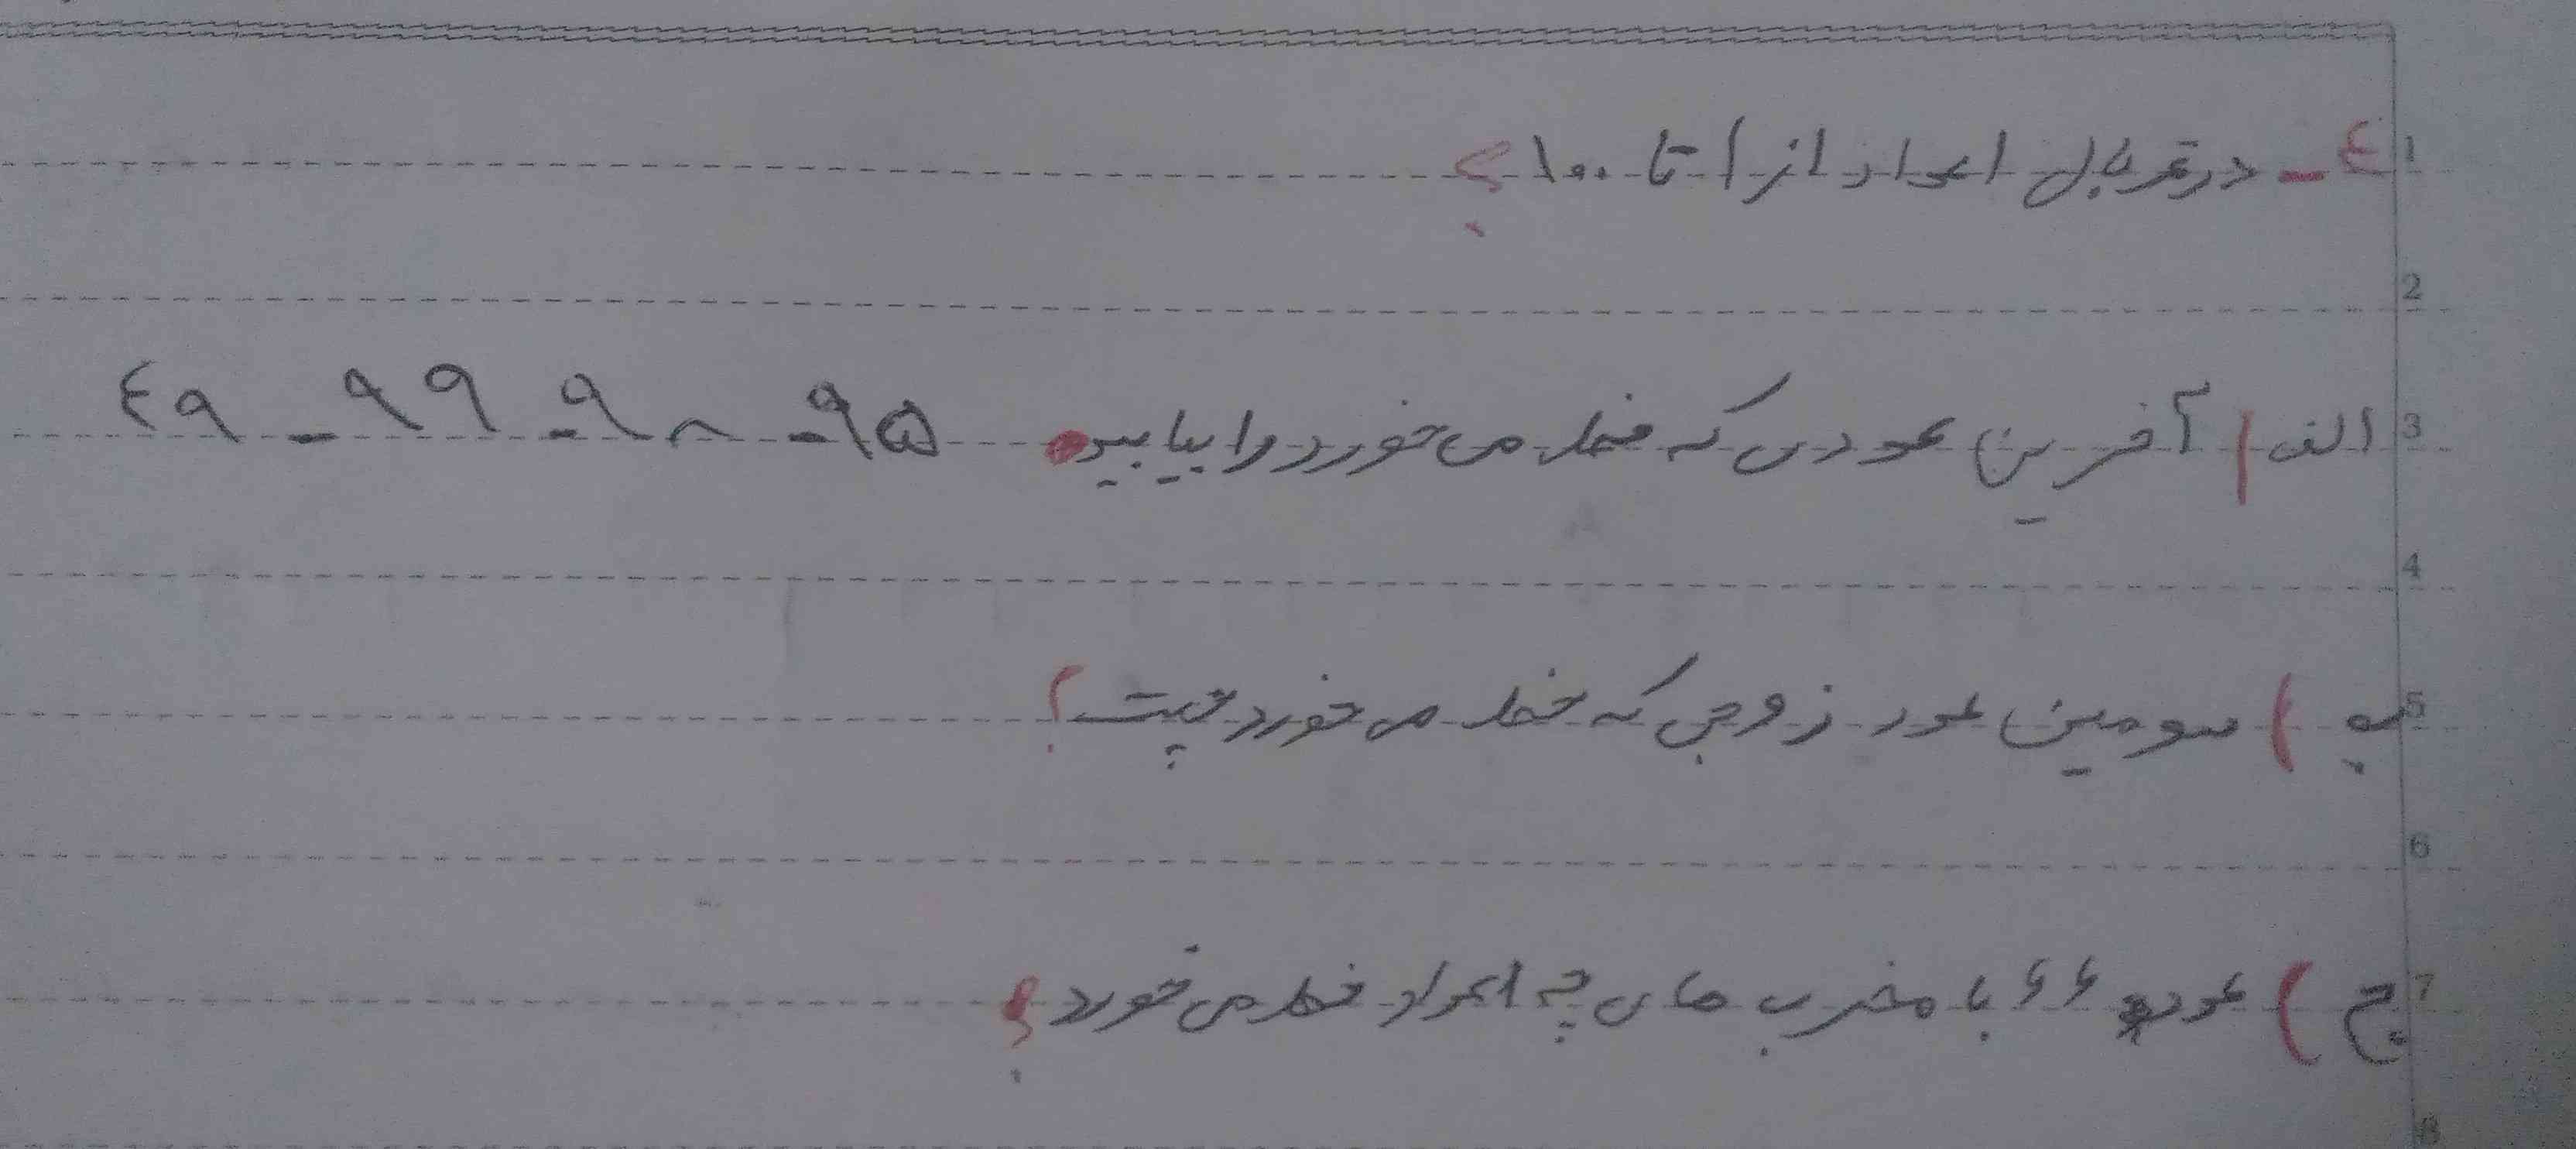 ۴- در غربال اعداد از ۱ تا ۱۰۰؟
الف) آخرین عددی که خط می خورد را بیابید. ۹۵ - ۹۸ - ۹۹ - ۴۹
ب) سومین عدد زوجی که خط می خورد چیست؟
ج) عدد ۶۶ با مضرب های چه اعداد خط می خورد؟
1
2
3
4
5
6
7
8